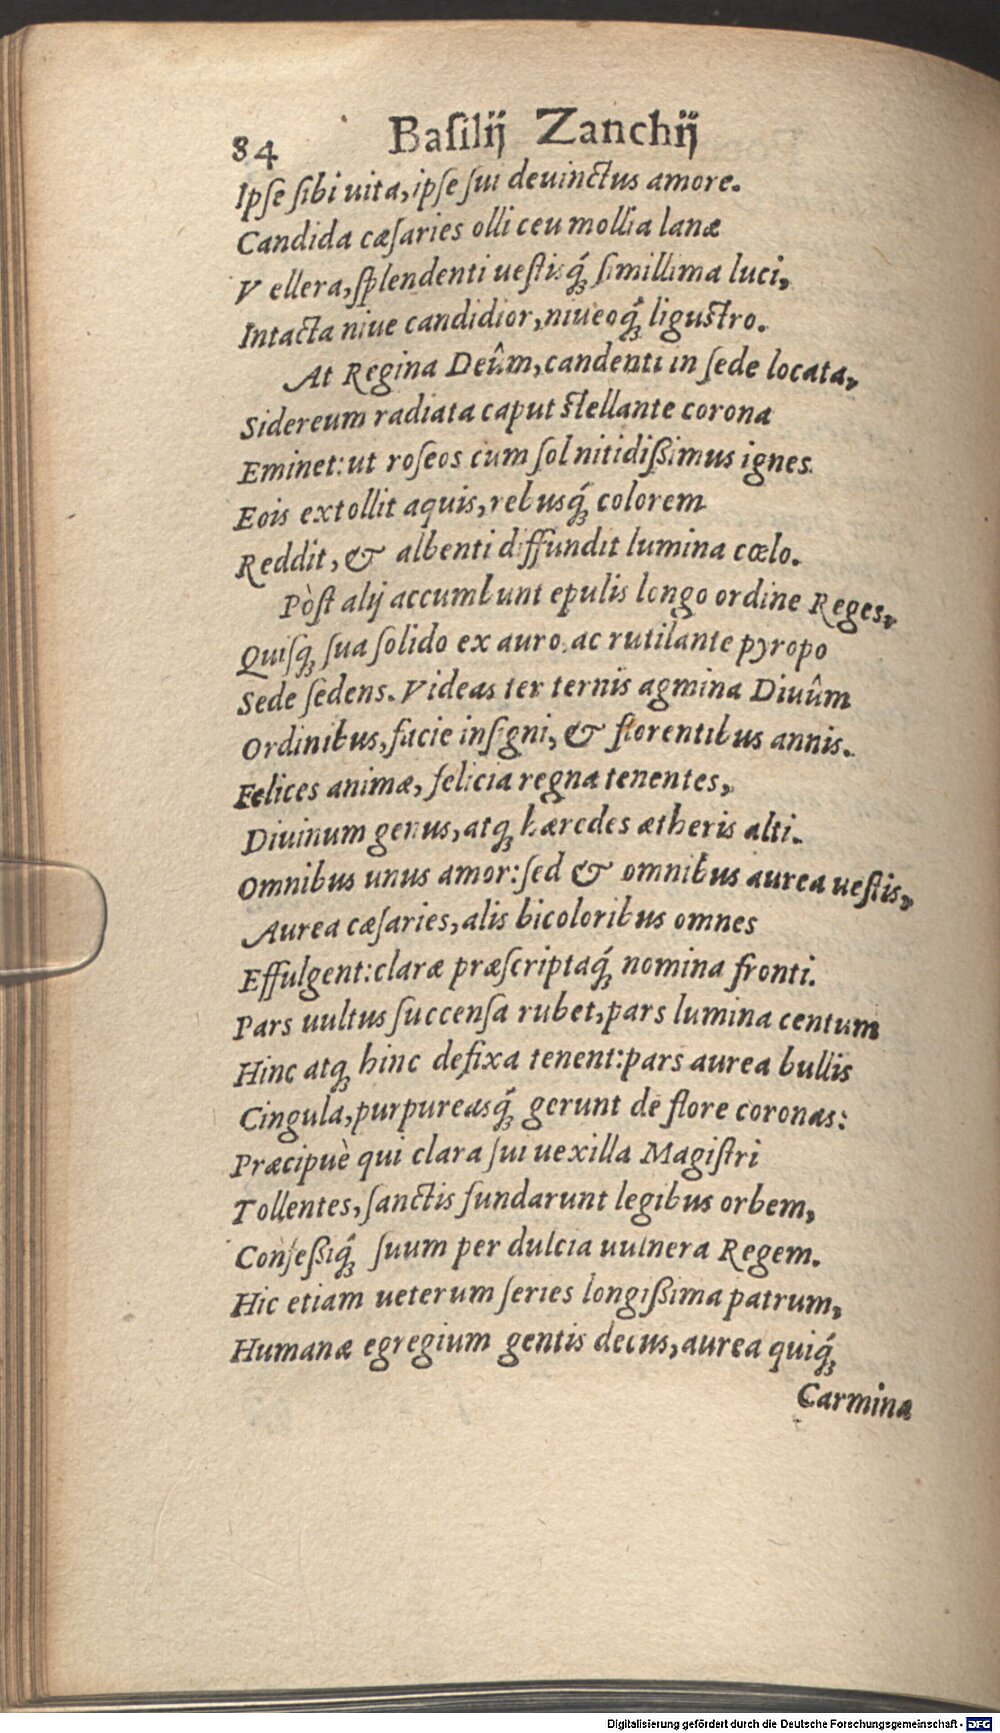 84 Baſilij Zanchij
Ipſe ſibi uita, ipſe ſui deuinctus amore.
Candida cæſaries olli ceu mollia lanæ
Vellera, ſplendenti ueſtisq́ꝫ ſimillima luci,
Intacta niue candidior, niueoq́ꝫ liguſtro.
At Regina Deûm, candenti in ſede locata,
Sidereum radiata caput ſtellante corona
Eminet: ut roſeos cum ſol nitidißimus ignes
Eois extollit aquis, rebusq́ꝫ colorem
Reddit, & albenti diffundit lumina cœlo.
Pòſt alij accumbunt epulis longo ordine Reges,
Quiſqꝫ ſua ſolido ex auro, ac rutilante pyropo
Sede ſedens. Videas ter ternis agmina Diuûm
Ordinibus, facie inſigni, & florentibus annis.
Felices animæ, felicia regna tenentes,
Diuinum genus, atqꝫ hæredes ætheris alti.
Omnibus unus amor: ſed & omnibus aurea ueſtis,
Aurea cæſaries, alis bicoloribus omnes
Effulgent: claræ præſcriptaq́ꝫ nomina fronti.
Pars uultus ſuccenſa rubet, pars lumina centum
Hinc atqꝫ hinc defixa tenent: pars aurea bullis
Cingula, purpureasq́ꝫ gerunt de flore coronas:
Præcipuè qui clara ſui uexilla Magiſtri
Tollentes, ſanctis fundarunt legibus orbem,
Confeßiq́ꝫ ſuum per dulcia uulnera Regem.
Hic etiam ueterum ſeries longißima patrum,
Humanæ egregium gentis decus, aurea quiq́ꝫ
Carmina
Digitalisierung gefördert durch die Deutsche Forschungsgemeinschaft - DFG